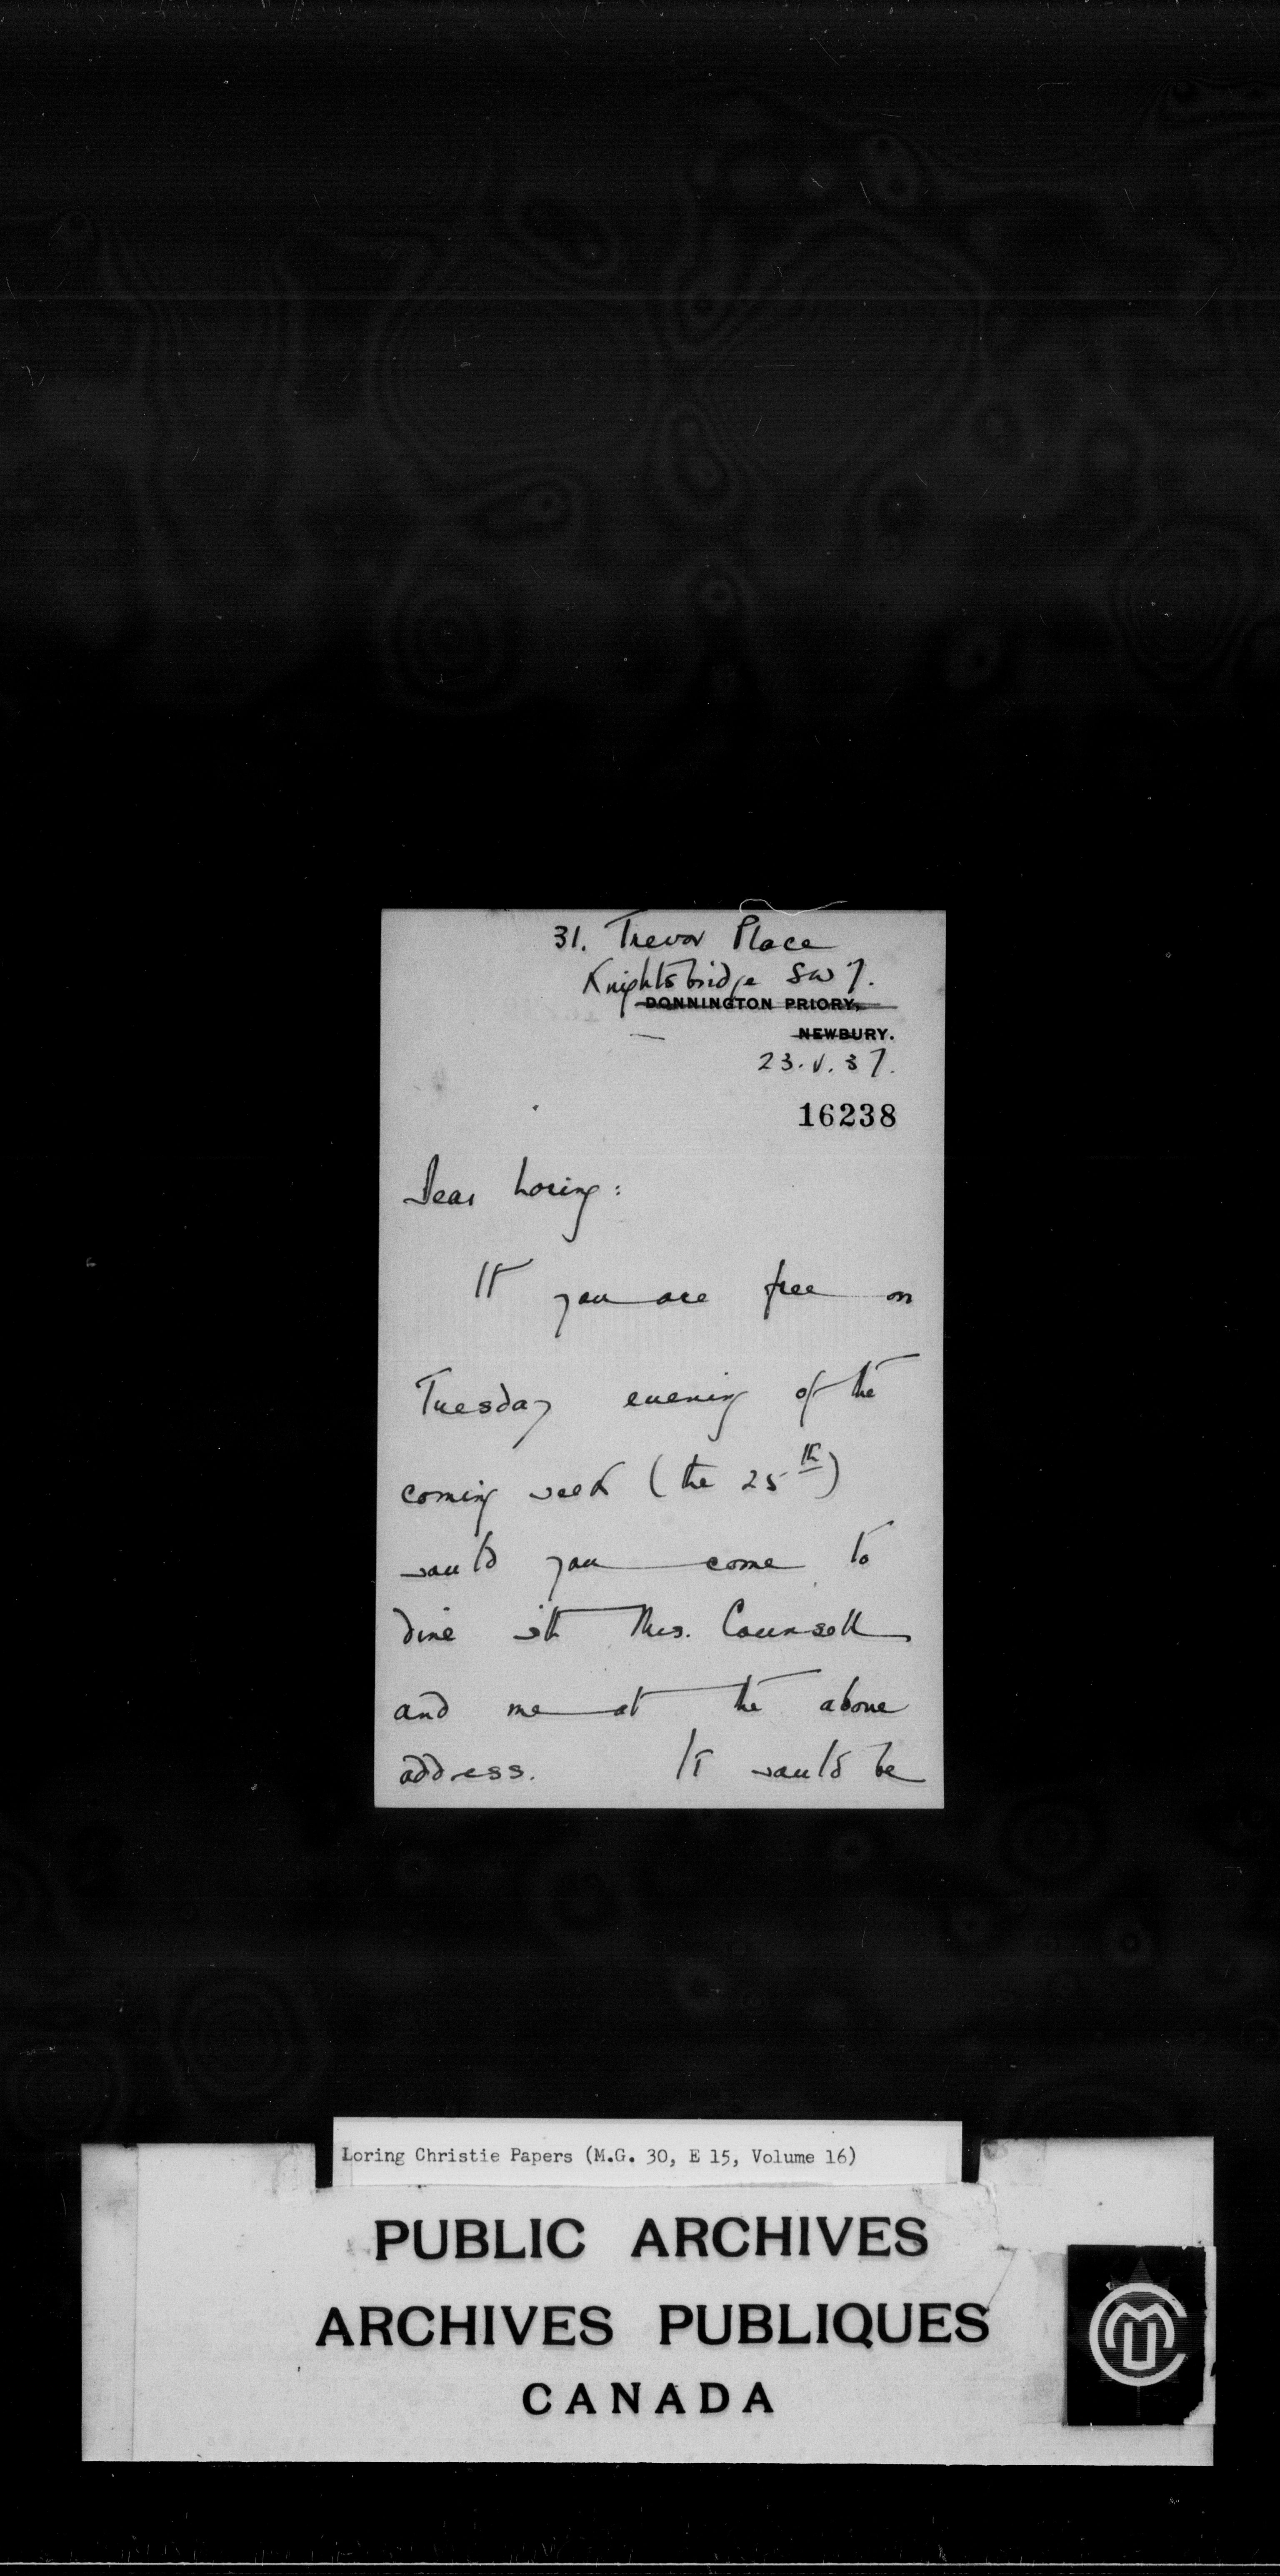 31. Trevor Place
Knightsbridge SW7.
DONNINGTON PRIORY,
NEWBURY.
23.V.37.
16238
Dear Loring:
If you are free on
Tuesday evening of the
coming week (the 25th)
would you come to
dine with Mrs. Counsell
and me at the above
address. It would be
Loring Christie Papers (M.G. 30, E 15, Volume 16)
PUBLIC ARCHIVES
ARCHIVES PUBLIQUES
CANADA